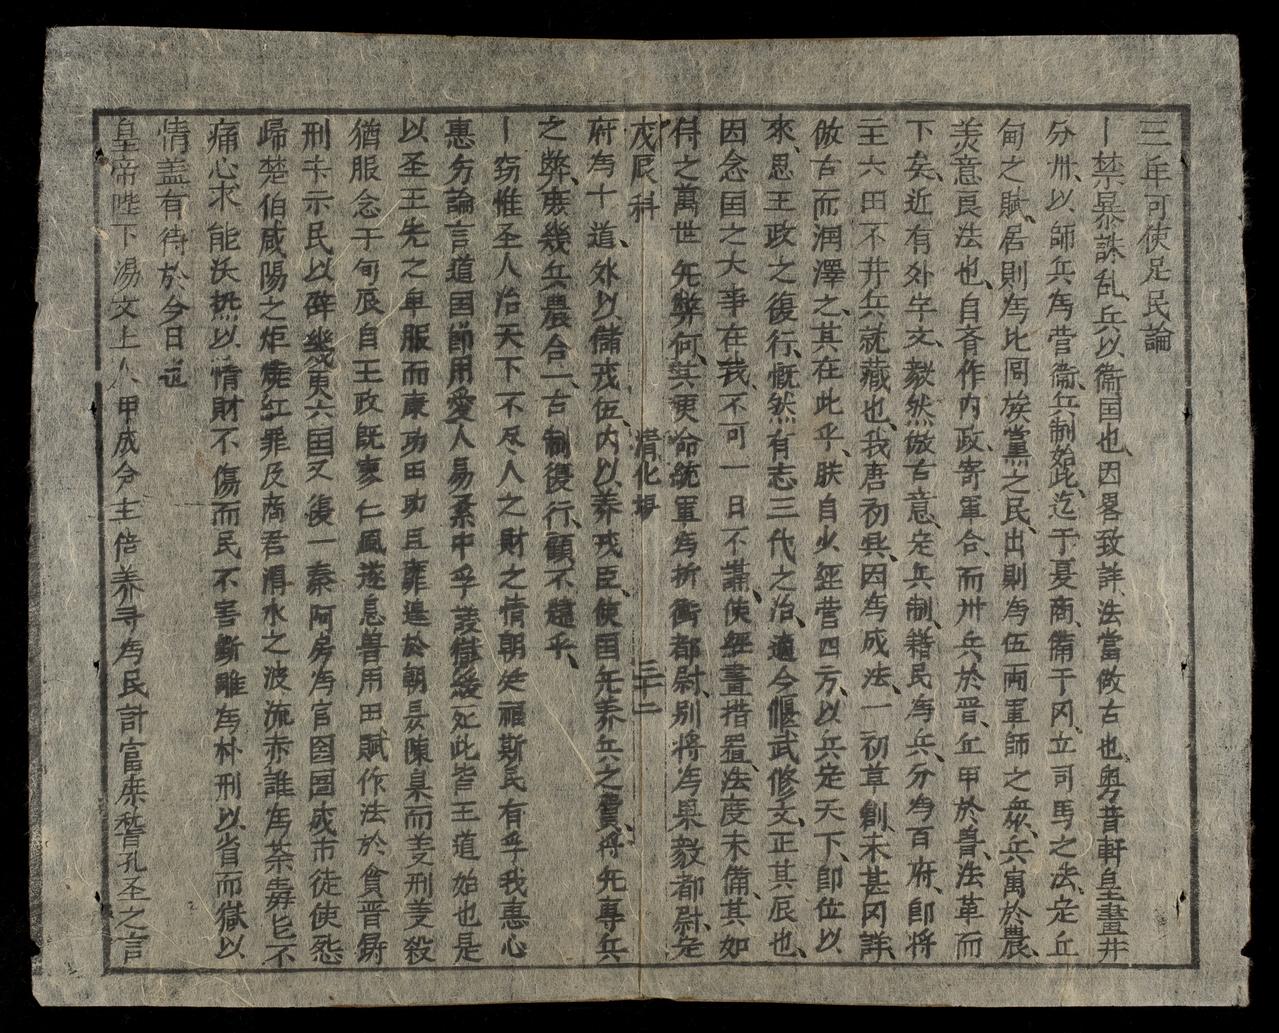 三年可使足民論
一禁暴誅乱兵以衞国也因畧致詳法當倣古也粤昔軒皇畫井
分卅以師兵為营衞兵制始此迄于夏商備于冈立司馬之法定丘
甸之賦居則為比閭族黨之民出則為伍両軍師之衆兵寓於農
羙意良法也自斉作内政寄軍令而卅兵於晋丘甲於魯法革而
下矣近有外宇文毅然倣古意定兵制籍民為兵分為百府郎将
主六田不井兵就藏也我唐初興因為成法一初草創未甚冈詳
倣古而润澤之其在此乎朕自少經营四方以兵定天下即位以
來思王政之復行慨然有志三代之治適今偃武修文正其辰也
因念国之大事在我不可一日不講使經畫措置法度未備其如
何之萬世无弊何其更命統軍為折衝都尉别将為果毅都尉定
戊辰科 清化塲 三十二
府為十道外以儲戎伍内以养戎臣使国无养兵之費将无專兵
之弊庶幾兵農合一古制復行顧不韙乎
一窃惟圣人治天下不尽人之財之情朝廷福斯民有孚我惠心
惠夯論言道国節用愛人易係中孚議獄缓死此皆王道始也是
以圣王先之卑服而康功田功且雍遑於朝晏陳臬而羙刑羙殺
猶服念于旬辰自王政既寥仁風遂息兽用田賦作法於貪晋鋳
刑 示民以辟幾東六国又復一秦阿房為官囹圄成市徒使怨
歸楚伯咸陽之炬燒紅罪及商君渭水之波流赤誰為荼毒匕不
痛心求能沃热以情財不傷而民不害斲雕為朴刑以省而獄以
情盖有待於今日
皇帝陛下湯文上人甲成分主倍养寻為民計富庶 孔圣之言